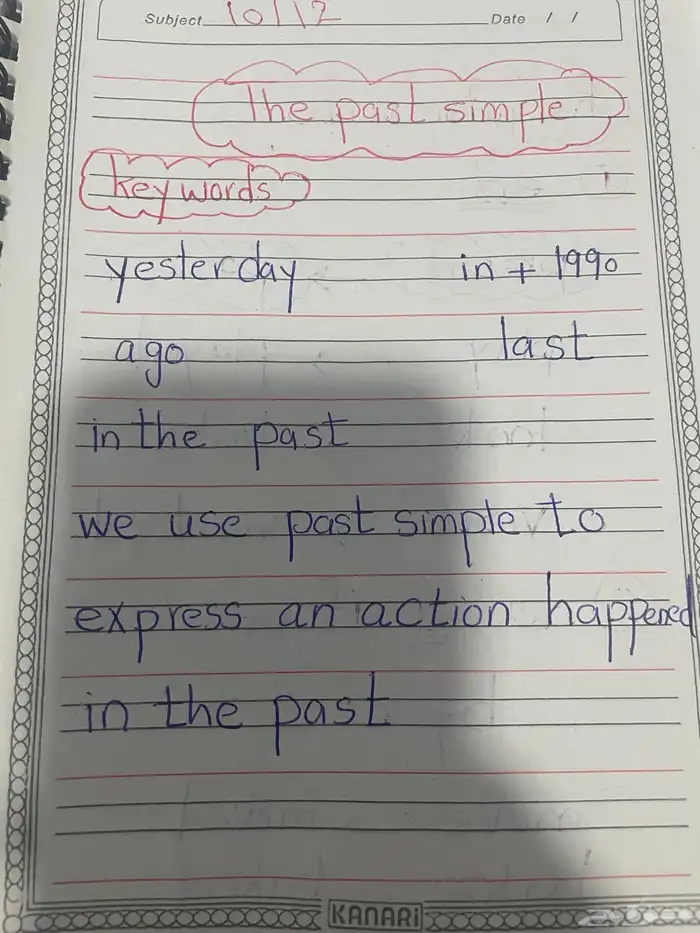 Subject 10/12 Date / /
The past simple
key words
yesterday in + 1990
ago last
in the past
we use past simple to
express an action happened
in the past
KANARi